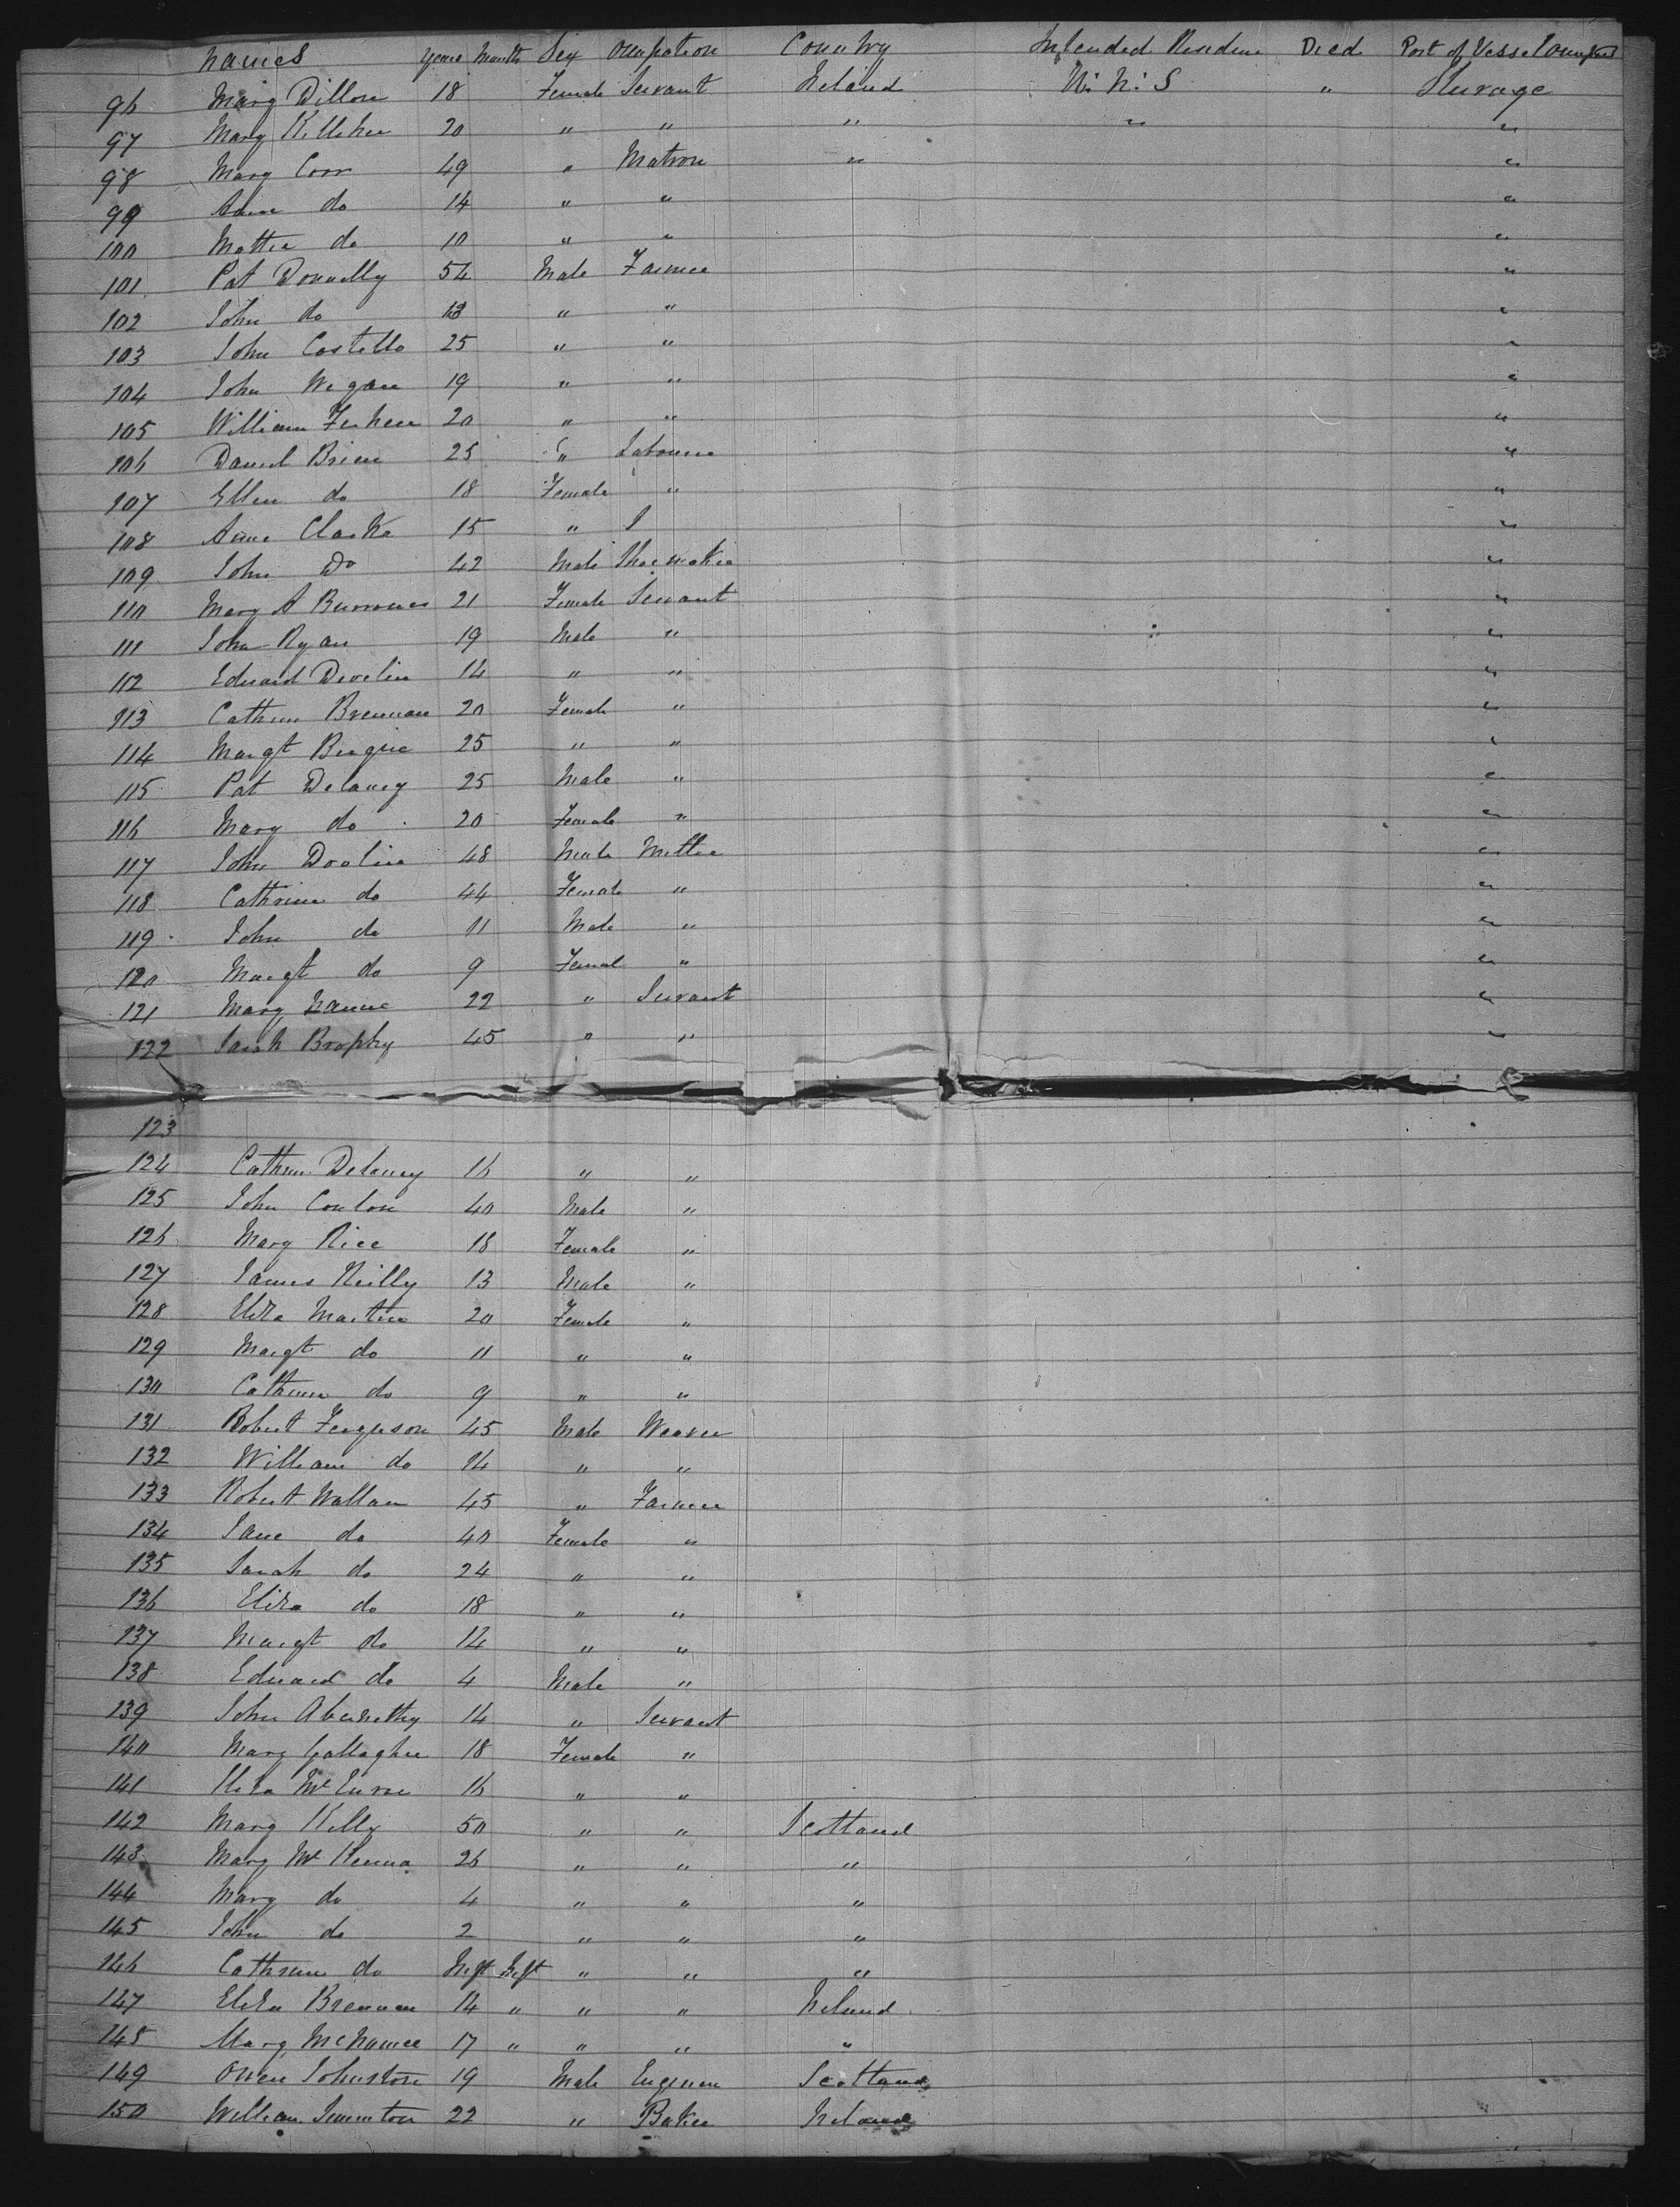 Names Years Months Sex Occupation Country Intended Residence Died Part of Vessel Occupied
96 Mary Dillon 18 Female Servant Ireland U. N. S " Sturage
97 Mary Killeher 20 " " " " "
98 Mary Corr 49 " Matron " "
99 Anne do 14 " " "
100 Mattie do 10 " " "
101 Pat Donnelly 54 Male Farmer "
102 John do 13 " " "
103 John Costello 25 " " "
104 John Wegan 19 " " "
105 William 20 " " "
106 Daniel Brien 25 " Labourer "
107 Ellen do 18 Female " "
108 Anne Clarke 15 " "
109 John Do 42 Male Shoemaker "
110 Mary A Burrows 21 Female Servant "
111 John Ryan 19 Male " "
112 Edward Develin 14 " " "
113 Cathrine Brennan 20 Female " "
114 Margt 25 " " "
115 Pat Delaney 25 Male " "
116 Mary do 20 Female " "
117 John Doolin 48 Male Miller "
118 Cathrine do 44 Female " "
119 John do 11 Male " "
120 Margt do 9 Female " "
121 Mary 22 " Servant "
122 Sarah Brophy 45 " " "
123
124 Cathrine Delaney 16 " "
125 John Conlon 40 Male "
126 Mary Rice 18 Female "
127 James Reilly 13 Male "
128 Eliza Martin 20 Female "
129 Margt do 11 " "
130 Cathrine do 9 " "
131 Robert Ferguson 45 Male Weaver
132 William do 14 " "
133 Robert Wallace 45 " Farmer
134 Jane do 40 Female "
135 Sarah do 24 " "
136 Eliza do 18 " "
137 Margt do 14 " "
138 Edward do 4 Male "
139 John Abernethy 14 " Servant
140 Mary Gallagher 18 Female "
141 Eliza 16 " "
142 Mary Kelly 50 " " Scotland
143 Mary McKenna 26 " " "
144 Mary do 4 " " "
145 John do 2 " " "
146 Cathrine do Inft Inft " " "
147 Eliza Brennan 14 " " " Ireland
148 Mary McNamee 17 " " " "
149 Owen Johnston 19 Male Engineer Scotland
150 William 22 " Baker Ireland